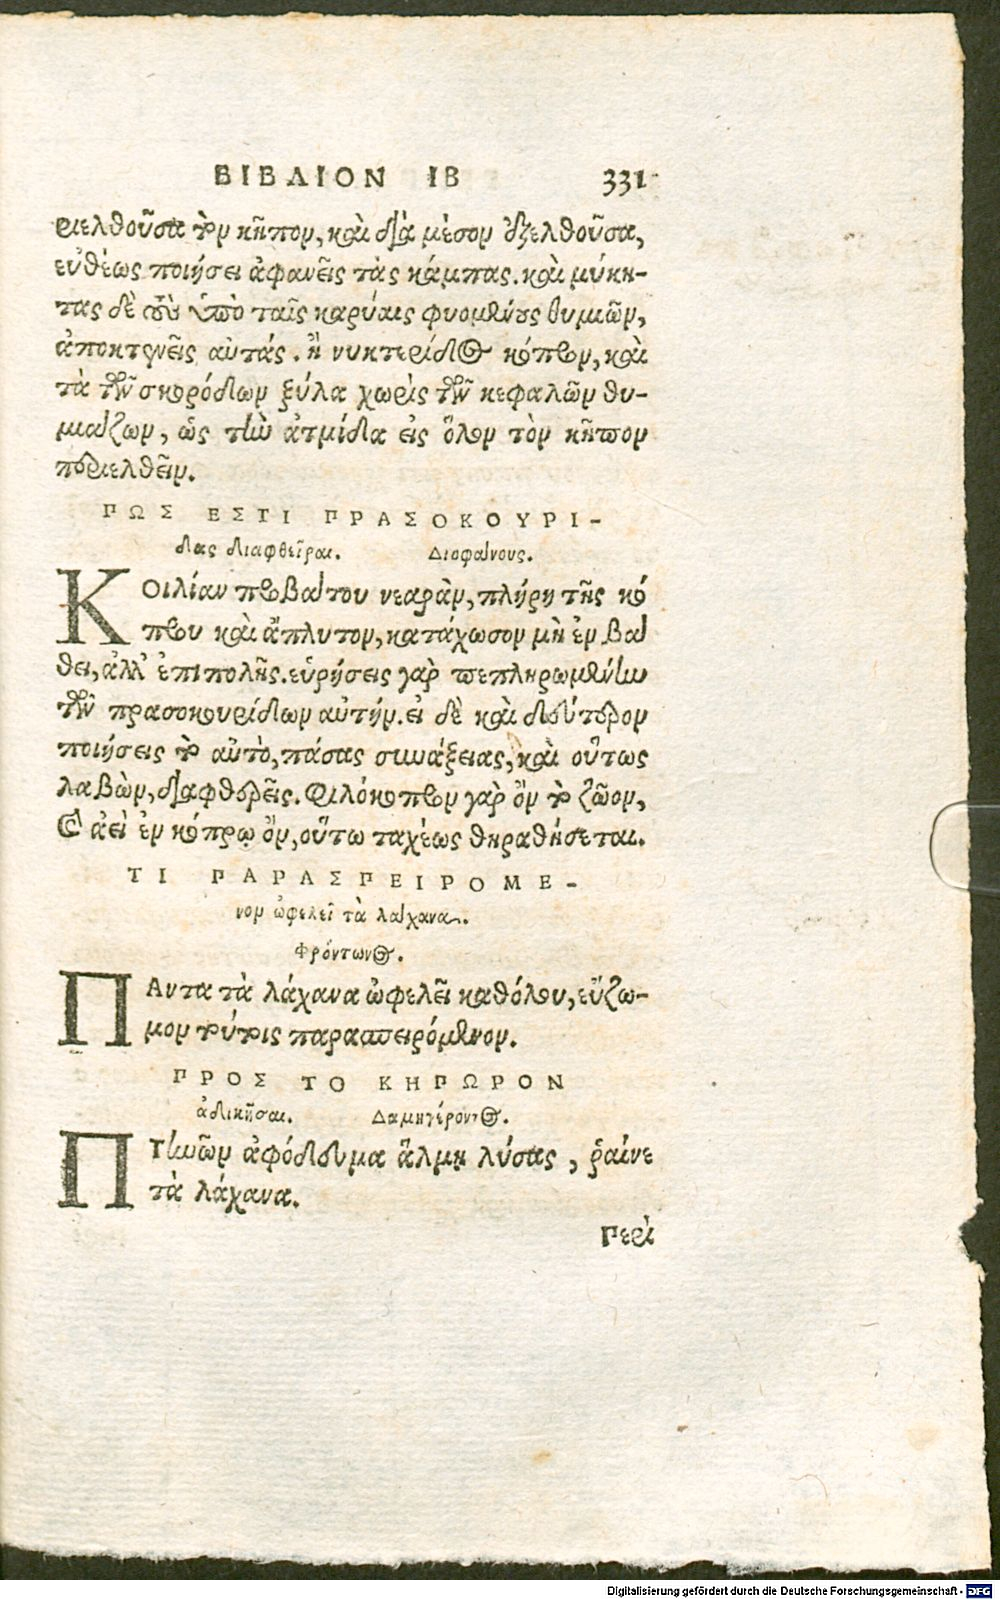 ΒΙΒΛΙΟΝ ΙΒ 331
ριελθοῦσα τὸν κῆπον, καὶ διὰ μέσον ἐξελθοῦσα,
εὐθέως ποιήσει ἀφανεῖς τὰς κάμπας. καὶ μύκη-
τας δὲ τοὺς ὑπὸ ταῖς καρύαις φυομένους θυμιῶν,
ἀποκτενεῖς αὐτάς. ἢ νυκτερίδος κόπρον, καὶ
τὰ τῶν σκορόδων ξύλα χωρὶς τῶν κεφαλῶν θυ-
μιάζων, ὡς τὴν ἀτμίδα εἰς ὅλον τὸν κῆπον
περιελθεῖν.
ΠΩΣ ΕΣΤΙ ΠΡΑΣΟΚΟΥΡΙ-
δας διαφθεῖραι. Διοφαίνους.
ΚΟιλίαν προβάτου νεαρὰν, πλήρη τῆς κό
πρου καὶ ἄπλυτον, κατάχωσον μὴ ἐν βά
θει, ἀλλ' ἐπιπολῆς. εὑρήσεις γὰρ πεπληρωμένην
τῶν πρασοκουρίδων αὐτήν. εἰ δὲ καὶ δεύτερον
ποιήσεις τὸ αὐτὸ, πάσας συνάξειας, καὶ οὕτως
λαβὼν, διαφθερεῖς. Φιλόκοπρον γὰρ ὂν τὸ ζῶον,
καὶ ἀεὶ ἐν κόπρῳ ὂν, οὕτω ταχέως θηραθήσεται.
ΤΙ ΠΑΡΑΣΠΕΙΡΟΜΕ-
νον ὠφελεῖ τὰ λάχανα.
Φρόντωνος.
ΠΑντα τὰ λάχανα ὠφελεῖ καθόλου, εὔζω-
μον τούτοις παρασπειρόμενον.
ΠΡΟΣ ΤΟ ΚΗΠΩΡΟΝ
ἀδικῆσαι. Δαμηγέροντος.
ΠΤηνῶν ἀφόδευμα ἅλμῃ λύσας, ῥαίνε
τὰ λάχανα.
Περὶ
Digitalisierung gefördert durch die Deutsche Forschungsgemeinschaft - DFG